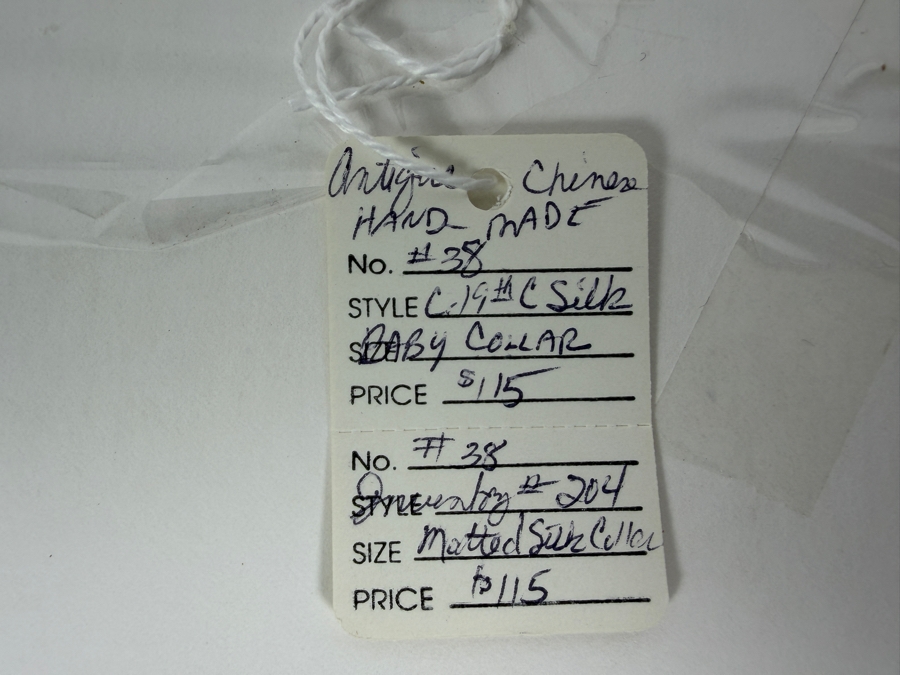 Antique Chinese
HAND MADE
No. #38
STYLE C-19th C Silk
SIZE BABY COLLAR
PRICE $115
No. # 38
STYLE Inventory # 204
SIZE Matted Silk Collar
PRICE $115